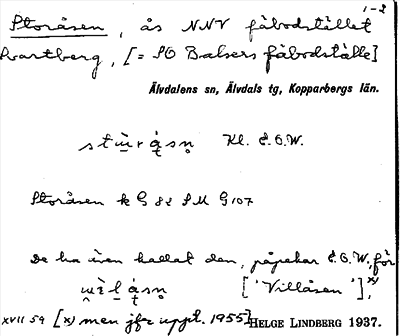 1-2
Storåsen, ås NNV fäbodstället
Svartberg, [= SO Balsers fäbodställe]
Älvdalens sn, Älvdals tg, Kopparbergs län.
Kl. E.O.W.
Storåsen k G 82 SM G 107
De ha även kallat den, påpekar E.O.W., för
['Villåsen'] x),
XVII 59 [x) men jfr uppt. 1955] HELGE LINDBERG 1937.